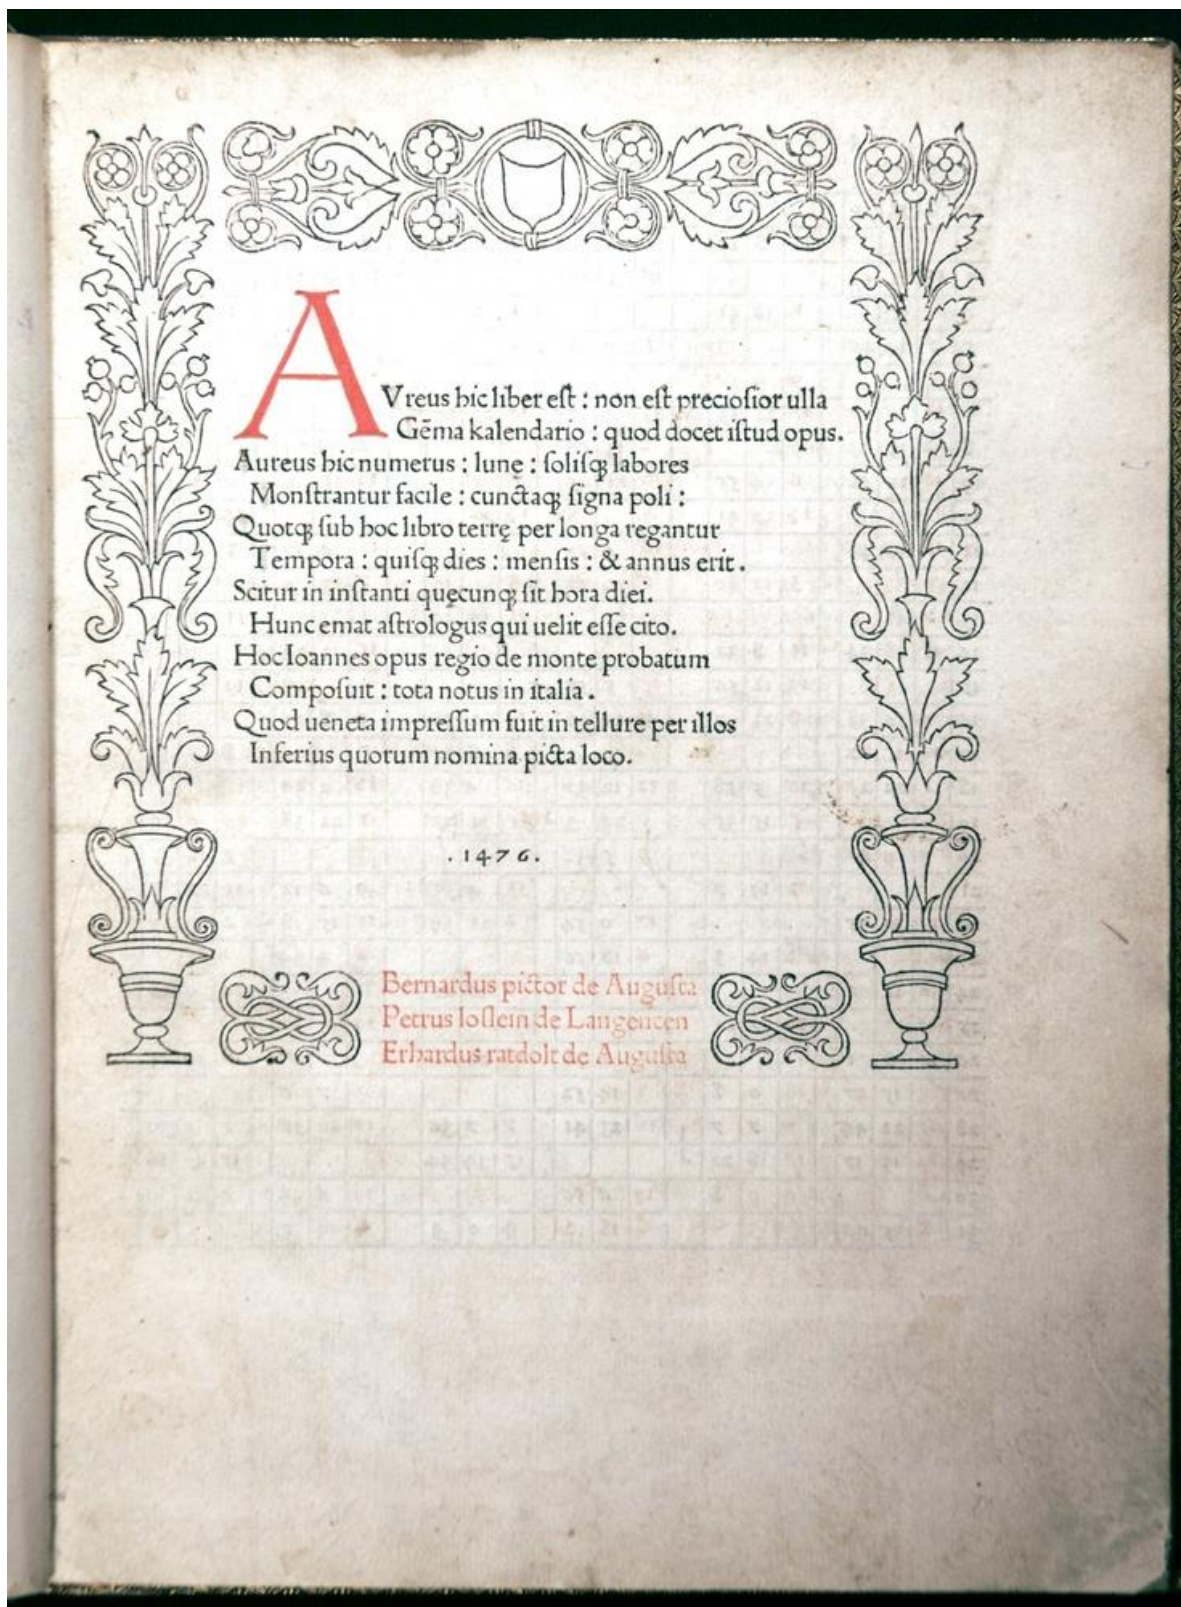 AVreus hic liber est : non est preciosior ulla
Gēma kalendario : quod docet istud opus.
Aureus hic numerus : lunę : solisq; labores
Monstrantur facile : cunctaq; signa poli :
Quotq; sub hoc libro terrę per longa regantur
Tempora : quisq; dies : mensis : & annus erit .
Scitur in instanti quęcunq; sit hora diei.
Hunc emat astrologus qui uelit esse cito.
Hoc Ioannes opus regio de monte probatum
Composuit : tota notus in italia .
Quod ueneta impressum fuit in tellure per illos
Inferius quorum nomina picta loco.
. 1476 .
Bernardus pictor de Augusta
Petrus loslein de Langencen
Erhardus ratdolt de Augusta